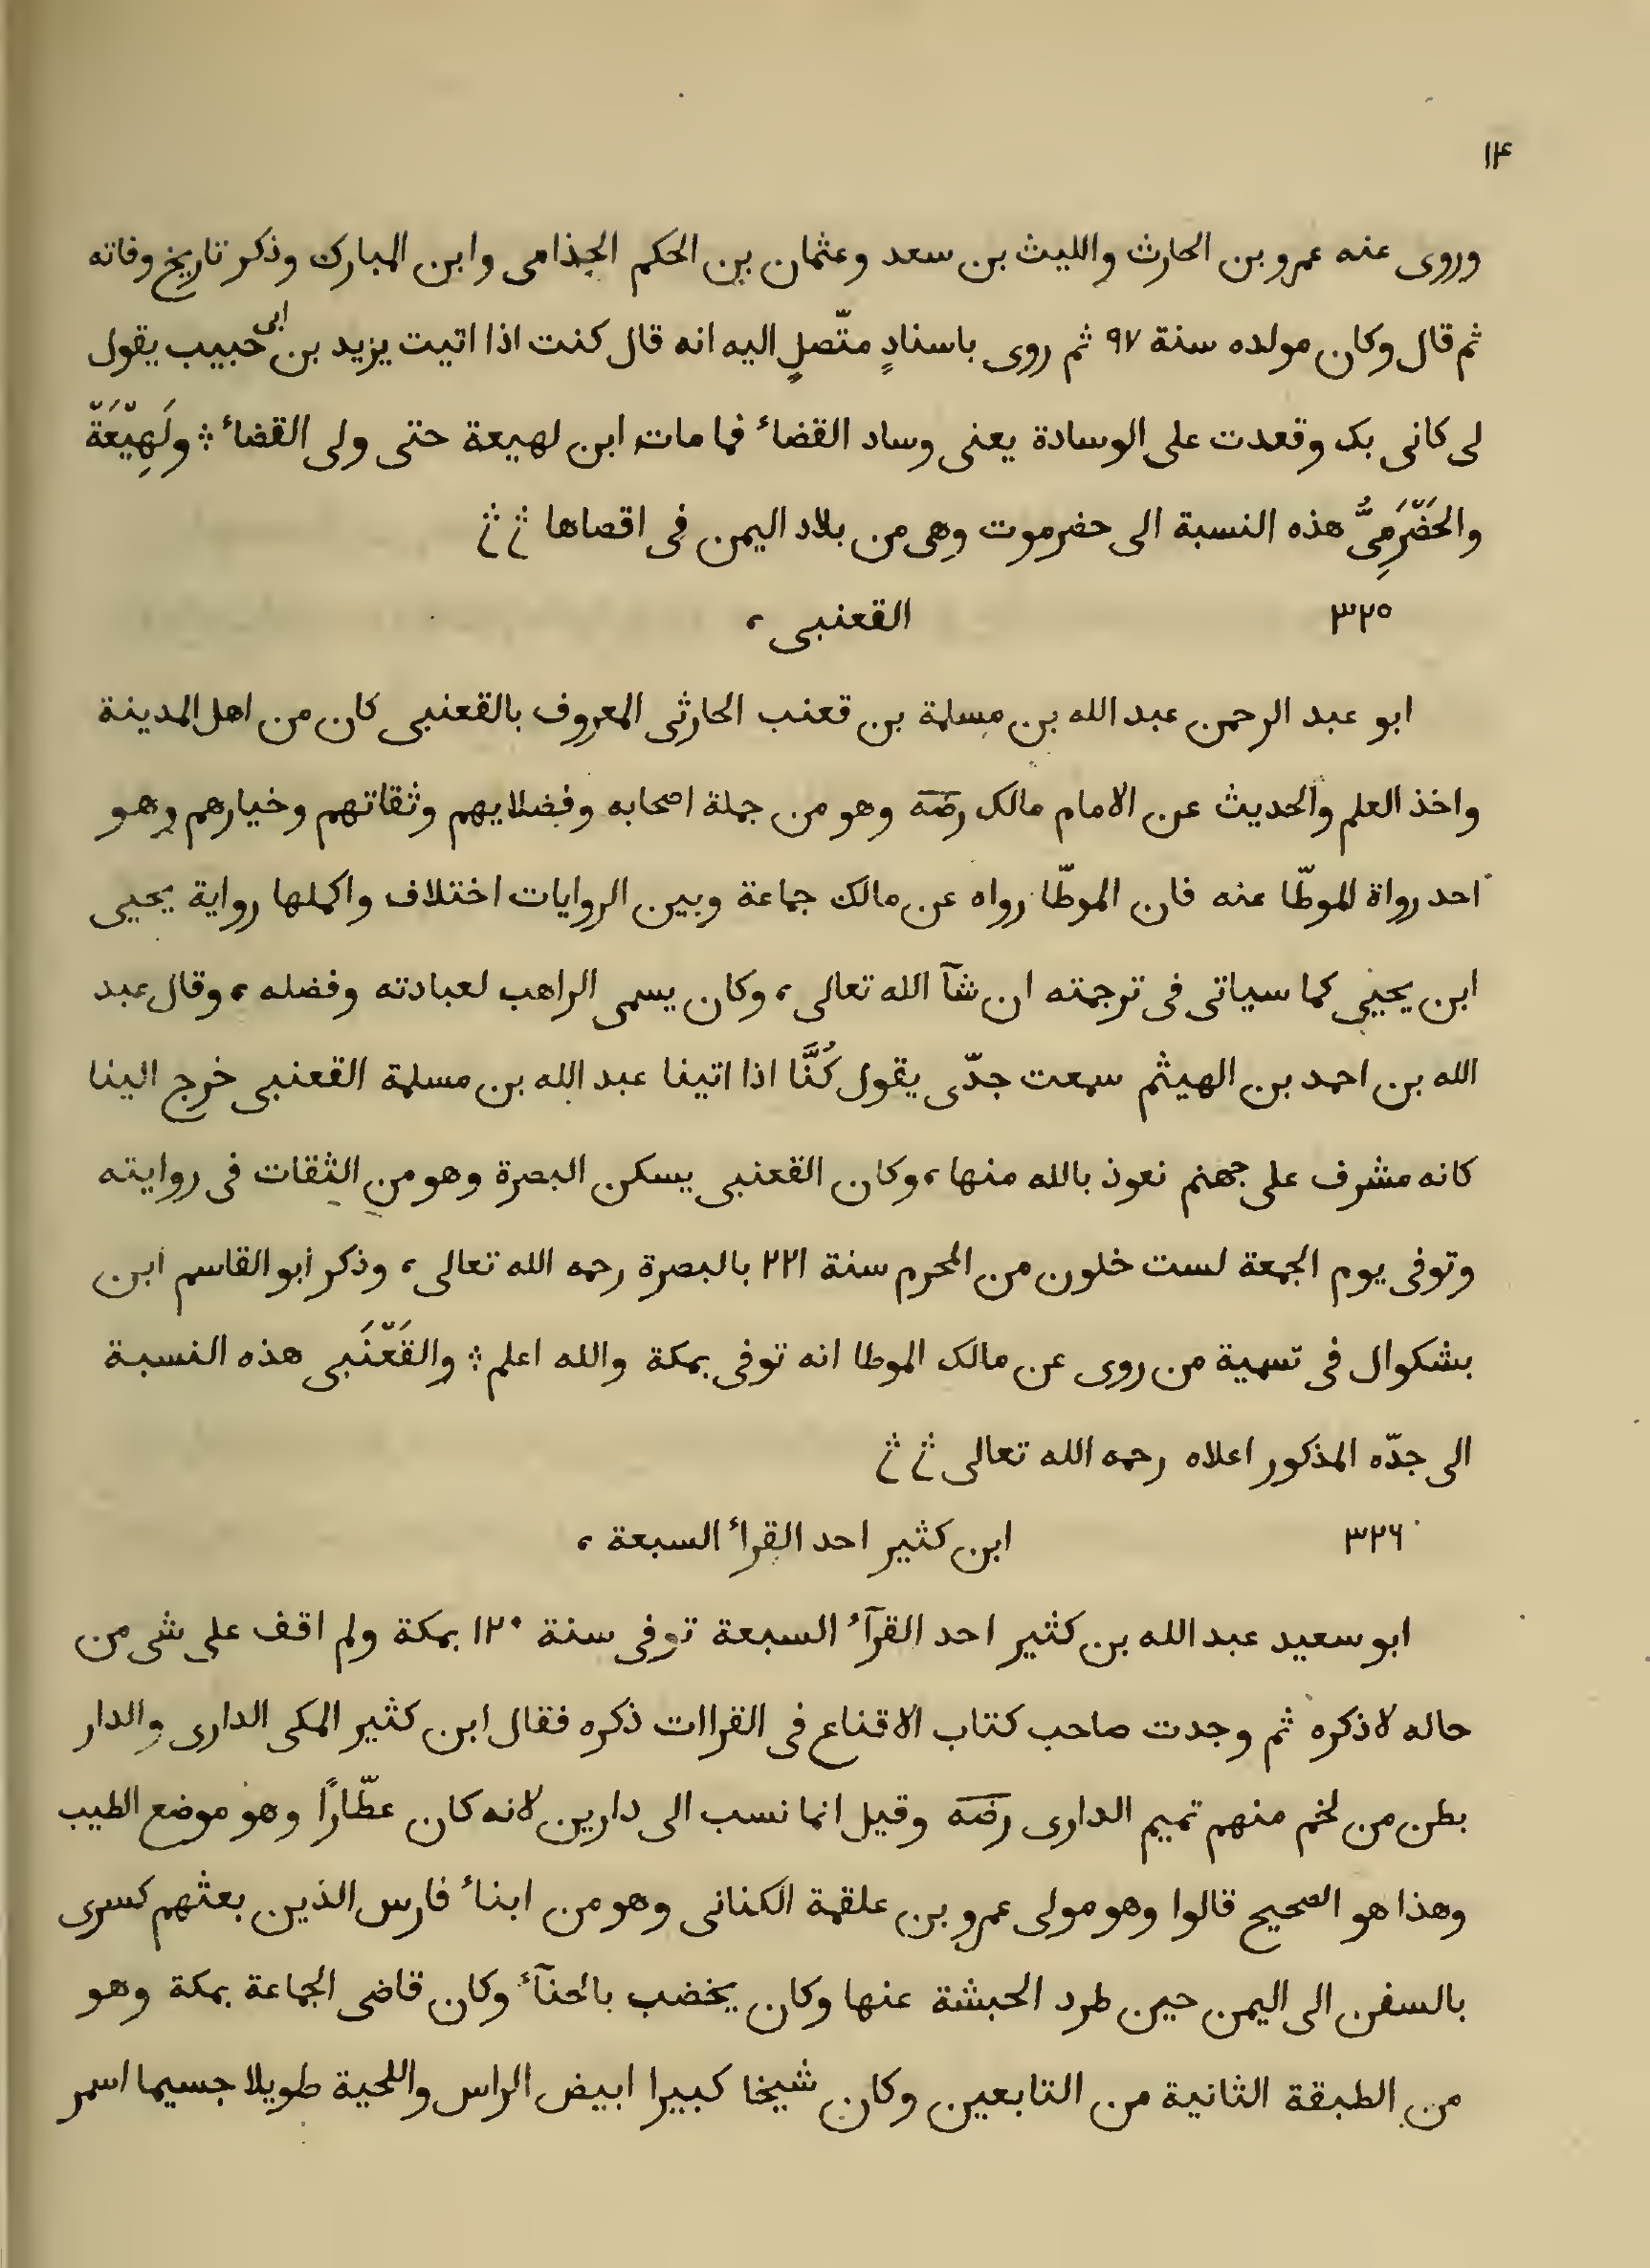 ١۴
وروى عنه عمرو بن الحارث والليث بن سعد وعثمان بن الحكم الجذامى وابن المبارك وذكر تاريخ وفاته
ثم قال وكان مولده سنة ٩٧ ثم روى باسنادٍ متّصلٍ اليه انه قال كنت اذا اتيت يزيد بن ابى حبيب يقول
لى كانى بك وقعدت على الوسادة يعنى وساد القضاء فما مات ابن لهيعة حتى ولى القضاء ⁘ ولَهِيْعَةْ
والحَضْرَمِىُّ هذه النسبة الى حضرموت وهى من بلاد اليمن فى اقصاها
٣٢٥ القعنبى ،
ابو عبد الرحمن عبد الله بن مسلمة بن قعنب الحارثى المعروف بالقعنبى كان من اهل المدينة
واخذ العلم والحديث عن الامام مالك رضّه وهو من جملة اصحابه وفضلايهم وثقاتهم وخيارهم وهو
احد رواة الموطّا عنه فان الموطّا رواه عن مالك جماعة وبين الروايات اختلاف واكملها رواية يحيى
ابن يحيى كما سياتى فى ترجمته ان شآ الله تعالى ، وكان يسمى الراهب لعبادته وفضله ، وقال عبد
الله بن احمد بن الهيثم سمعت جدّى يقول كُنَّا اذا اتينا عبد الله بن مسلمة القعنبى خرج الينا
كانه مشرف على جهنم نعوذ بالله منها ، وكان القعنبى يسكن البصرة وهو من الثقات فى روايته
وتوفى يوم الجمعة لست خلون من المحرم سنة ٢٢١ بالبصرة رحمه الله تعالى ، وذكر ابو القاسم ابن
بشكوال فى تسمية من روى عن مالك الموطا انه توفى بمكة والله اعلم ⁘ والقَعْنَبى هذه النسبة
الى جدّه المذكور اعلاه رحمه الله تعالى
٣٢٦ ابن كثير احد القراء السبعة ،
ابو سعيد عبد الله بن كثير احد القرآء السبعة توفى سنة ١٢٠ بمكة ولم اقف على شى من
حاله لاذكره ثم وجدت صاحب كتاب الاقناع فى القراات ذكره فقال ابن كثير المكى الدارى والدار
بطن من لخم منهم تميم الدارى رضّه وقيل انما نسب الى دارين لانه كان عطّارًا وهو موضع الطيب
وهذا هو الصحيح قالوا وهو مولى عمرو بن علقمة الكنانى وهو من ابناء فارس الذين بعثهم كسرى
بالسفن الى اليمن حين طرد الحبشة عنها وكان يخضب بالحنآء وكان قاضى الجماعة بمكة وهو
من الطبقة الثانية من التابعين وكان شيخا كبيرا ابيض الراس واللحية طويلا جسيما اسمر